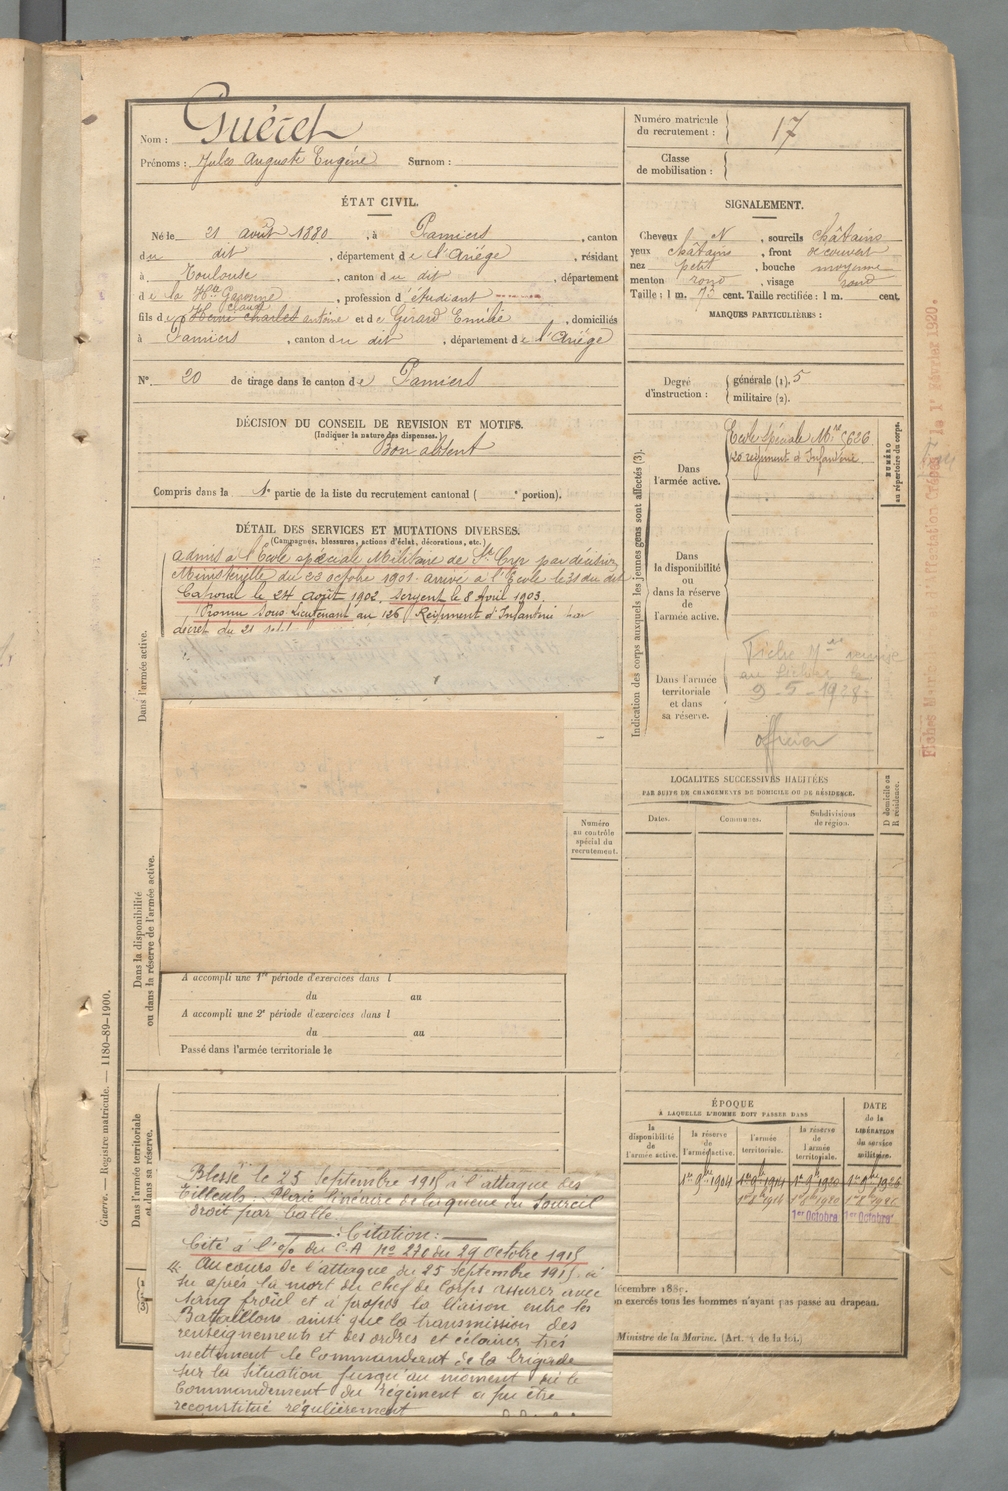 Nom : Guéret
Prénoms : Jules Auguste Eugène Surnom :
Numéro matricule
du recrutement : 17
Classe
de mobilisation :
ÉTAT CIVIL.
Né le 21 août 1880, à Pamiers, canton
du dit, département de l'Ariège, résidant
à Toulouse, canton du dit, département
de la Hte Garonne, profession d'étudiant
fils de Henri Charles antoine et de Girard Emilie, domiciliés
à Pamiers, canton du dit, département de l'Ariège
N° 20 de tirage dans le canton de Pamiers
SIGNALEMENT.
Cheveux N, sourcils châtains
yeux châtains, front découvert
nez petit, bouche moyenne
menton rond, visage rond
Taille : 1 m. 73 cent. Taille rectifiée : 1 m. cent.
MARQUES PARTICULIÈRES :
Degré
d'instruction :
générale (1). 5
militaire (2).
DÉCISION DU CONSEIL DE REVISION ET MOTIFS.
(Indiquer la nature des dispenses.)
Bon absent
Compris dans la 1e partie de la liste du recrutement cantonal ( e portion).
DÉTAIL DES SERVICES ET MUTATIONS DIVERSES.
(Campagnes, blessures, actions d'éclat, décorations, etc.)
admis à l'Ecole spéciale Militaire de St Cyr par décision
Ministérielle du 23 octobre 1901. arrivé à l'Ecole le 31 du dit
Caporal le 24 août 1902. Sergent le 8 Avril 1903.
Promu Sous-Lieutenant au 126 Régiment d'Infanterie par
décret du 21 sept
Dans l'armée active.
Indication des corps auxquels les jeunes gens sont affectés (3).
Dans
l'armée active.
Ecole Spéciale Mre 5626
120 régiment d'Infanterie.
NUMÉRO
au répertoire du corps.
Dans
la disponibilité
ou
dans la réserve
de
l'armée active.
Dans l'armée
territoriale
et dans
sa réserve.
Fiche Mle remise
au fichier le
9-5-1928
officier
LOCALITÉS SUCCESSIVES HABITÉES
PAR SUITE DE CHANGEMENTS DE DOMICILE OU DE RÉSIDENCE.
Dates.
Communes.
Subdivisions
de région.
D domicile ou
R résidence.
Dans la disponibilité
ou dans la réserve de l'armée active.
Numéro
au contrôle
spécial du
recrutement.
A accompli une 1re période d'exercices dans l
du au
A accompli une 2e période d'exercices dans l
du au
Passé dans l'armée territoriale le
Dans l'armée territoriale
et dans sa réserve.
Blessé le 25 Septembre 1915 à l'attaque des
Tilleuls. Plaie linéaire de la queue du Sourcil
droit par balle.
Citation :
Cité à l'o/o du C.A No 270 du 29 octobre 1915
"Au cours de l'attaque du 25 Septembre 1915 a
su après la mort du Chef de Corps assurer avec
sang froid et à propos la liaison entre les
Bataillons ainsi que la transmission des
renseignements et des ordres et éclairer très
nettement le Commandant de la brigade
sur la situation jusqu'au moment où le
Commandement du régiment a pu être
reconstitué régulièrement
ÉPOQUE
À LAQUELLE L'HOMME DOIT PASSER DANS
la
disponibilité
de
l'armée active.
la réserve
de
l'armée active.
l'armée
territoriale.
la réserve
de
l'armée
territoriale.
DATE
de la
LIBÉRATION
du service
militaire.
1er 9bre 1904
1er 9bre 1914
1er 9bre 1920
1er 9bre 1926
1er Octobre
1er Octobre
décembre 1889.
on exercés tous les hommes n'ayant pas passé au drapeau.
Ministre de la Marine. (Art. 4 de la loi.)
Guerre. — Registre matricule. — 1180-89-1900.